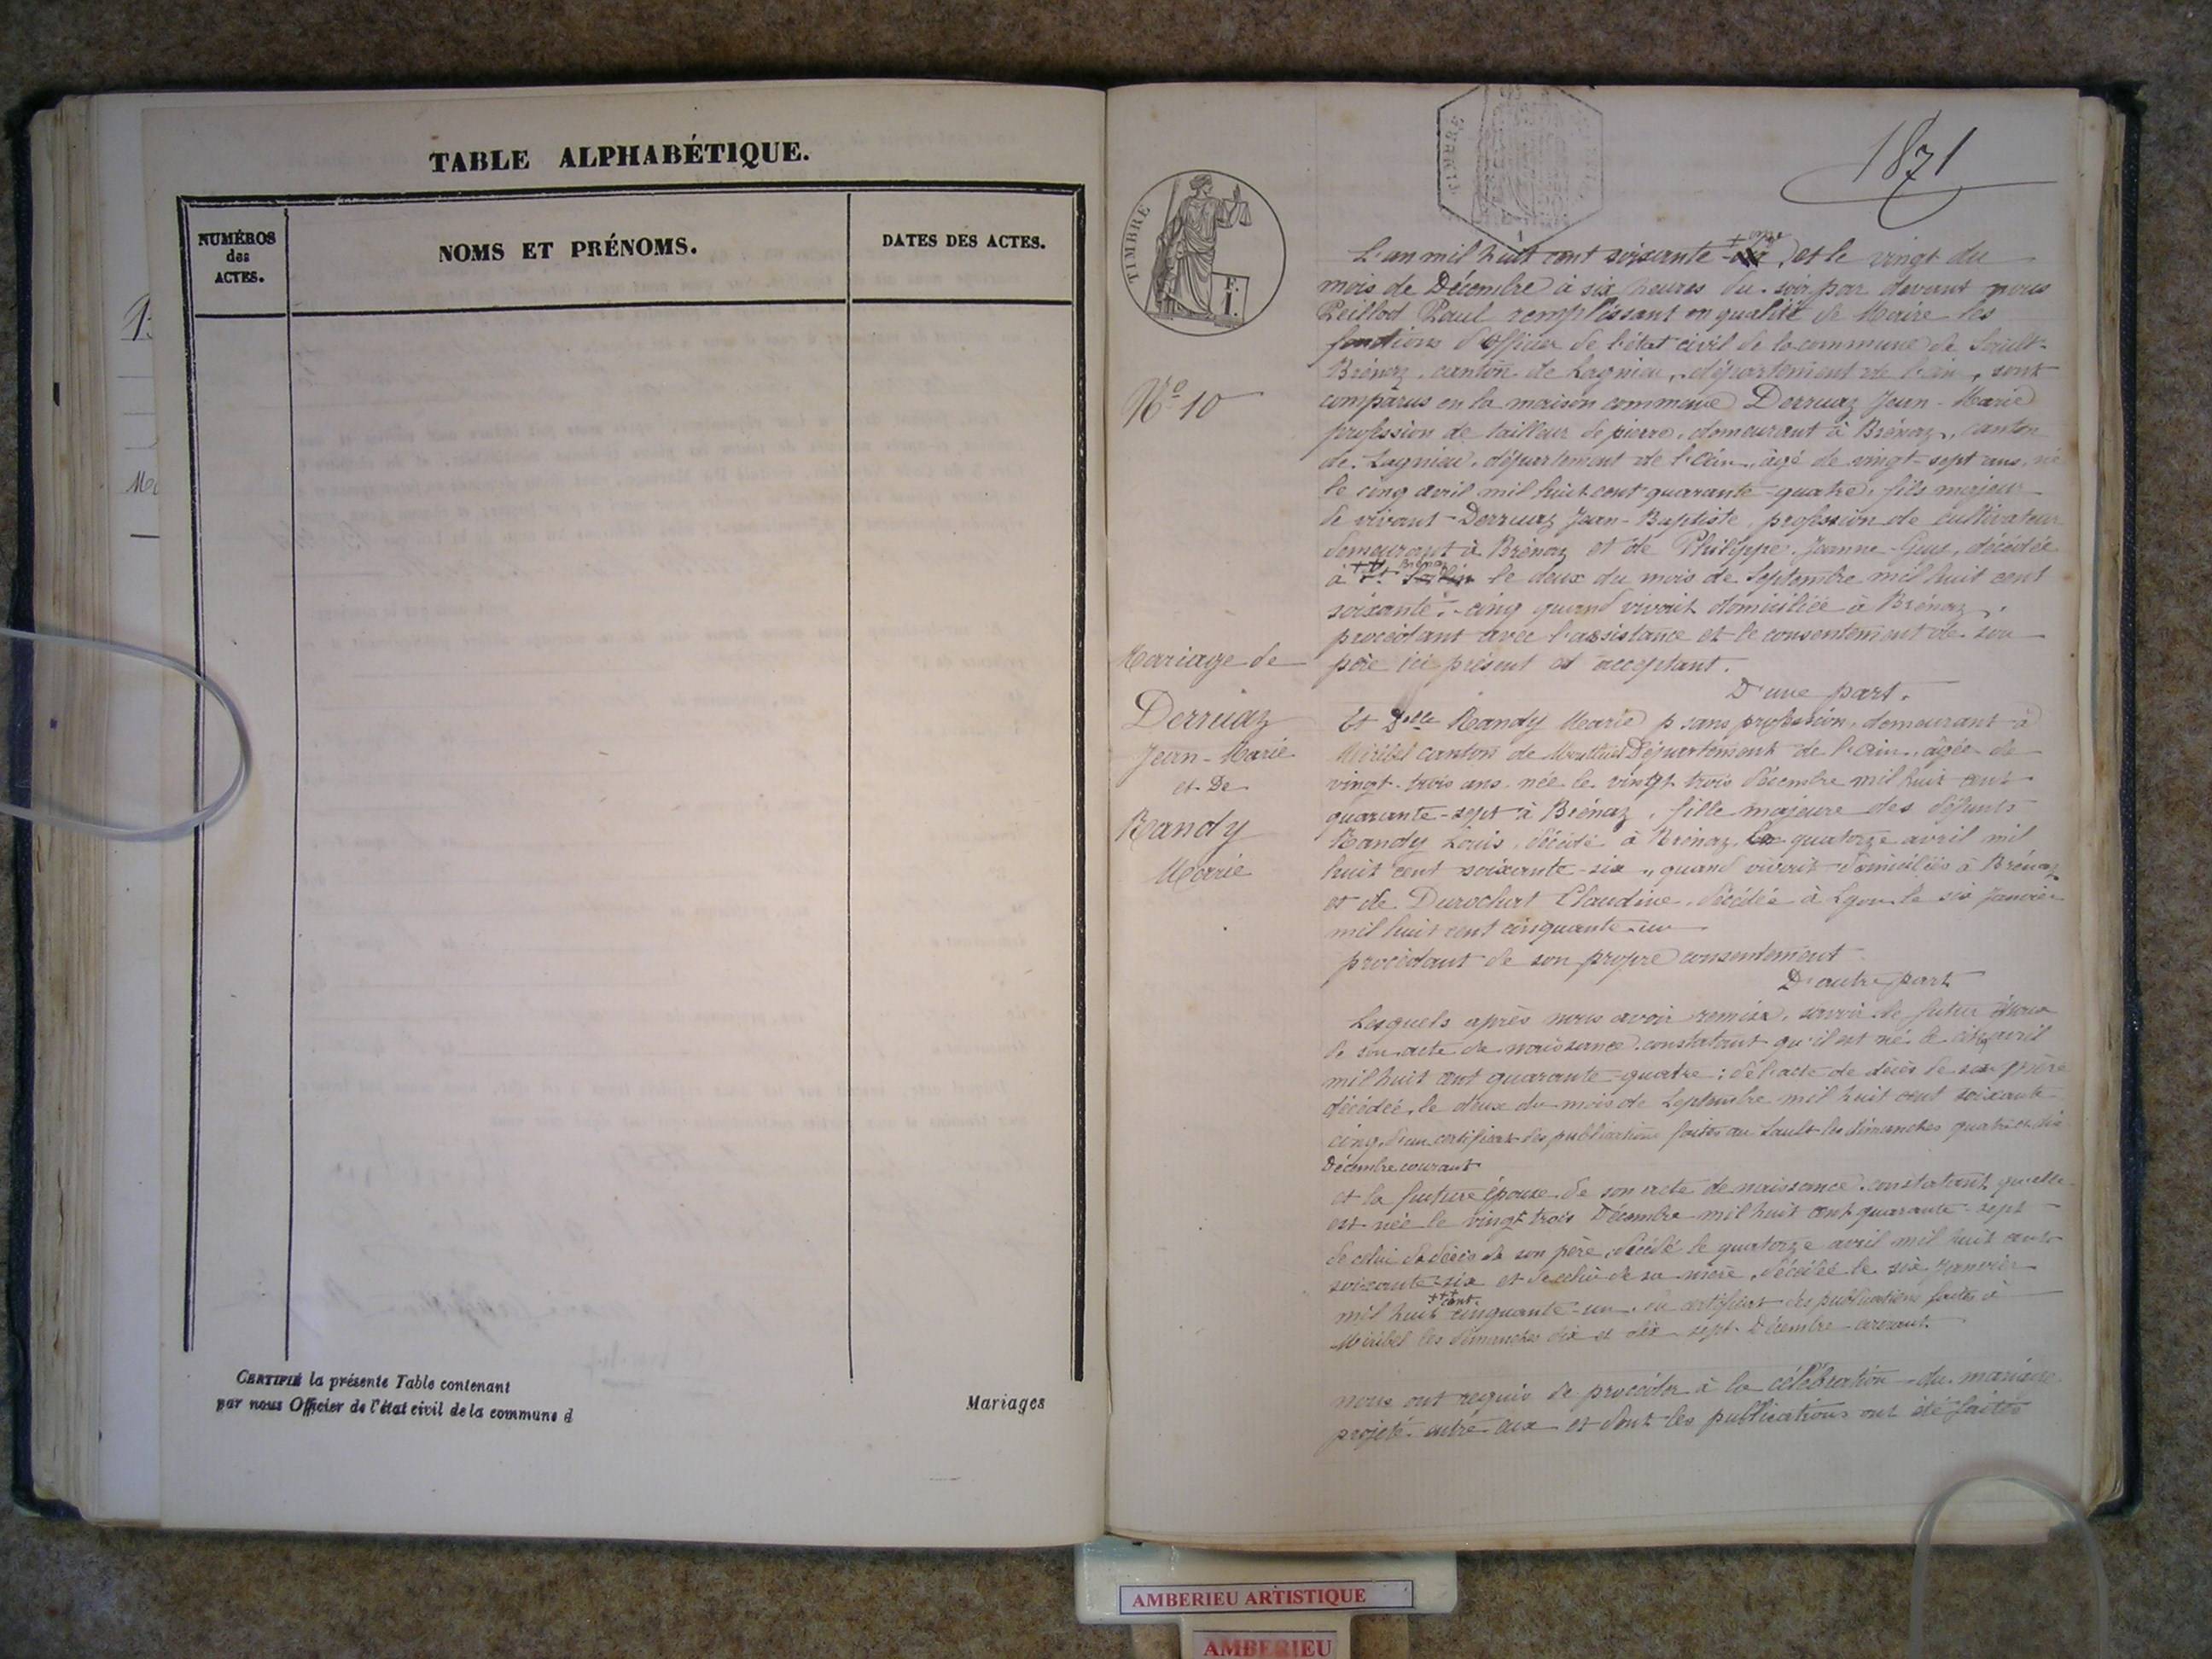 TABLE ALPHABÉTIQUE.
NUMÉROS
des
ACTES.
NOMS ET PRÉNOMS.
DATES DES ACTES.
CERTIFIÉ la présente Table contenant
par nous Officier de l'état civil de la commune d
Mariages
TIMBRE
F.
I.
TIMBRE
1871
N° 10
Mariage de
Derruaz
Jean-Marie
et De
Randy
Marie
L'an mil huit cent soixante et le vingt du
mois de Décembre à six heures du soir par devant nous
Peillod Paul remplissant en qualité de Maire les
fonctions d'Officier de l'état civil de la commune de Sault-
Brénaz, canton de Lagnieu, département de l'ain, sont
comparus en la maison commune Derruaz Jean-Marie
profession de tailleur de pierre, demeurant à Brénaz, canton
de Lagnieu, département de l'Ain, âgé de vingt-sept ans, né
le cinq avril mil huit cent quarante-quatre, fils majeur
de vivant Derruaz Jean-Baptiste, profession de cultivateur
demeurant à Brénaz et de Philippe, Jeanne décédée
à Brénaz le deux du mois de Septembre mil huit cent
soixante-cinq quand vivait domiciliée à Brénaz,
procédant avec l'assistance et le consentement de son
père ici présent et acceptant.
D'une part.
Et Delle Randy Marie p sans profession, demeurant à
Miribel canton de Montluel Département de l'ain, âgée de
vingt-trois ans née le vingt trois Décembre mil huit cent
quarante-sept à Brénaz, fille majeure des défunts
Randy Louis, décédé à Brénaz le quatorze avril mil
huit cent soixante-six, quand vivait domiciliés à Brénaz
et de Durochat Claudine, décédée à Lyon le six Janvier
mil huit cent cinquante-un
procédant de son propre consentement
D'autre part
Lesquels après nous avoir remis, savoir le futur époux
de son acte de naissance constatant qu'il est né le cinq avril
mil huit cent quarante-quatre; de l'acte de décès de sa mère
décédée, le deux du mois de Septembre mil huit cent soixante-
cinq, d'un certificat des publications faites au Sault les dimanches quatre et dix
Décembre courant
et la future épouse de son acte de naissance constatant qu'elle
est née le vingt trois Décembre mil huit cent quarante-sept
de celui de décès de son père, décédé le quatorze avril mil huit cent
soixante-six et de celui de sa mère, décédée le six Janvier
mil huit +++ cent cinquante-un, du certificat des publications faites à
Miribel les dimanches dix et dix-sept Décembre courant.
nous ont requis de procéder à la célébration du mariage
projeté entre eux et dont les publications ont été faites
AMBERIEU ARTISTIQUE
AMBERIEU